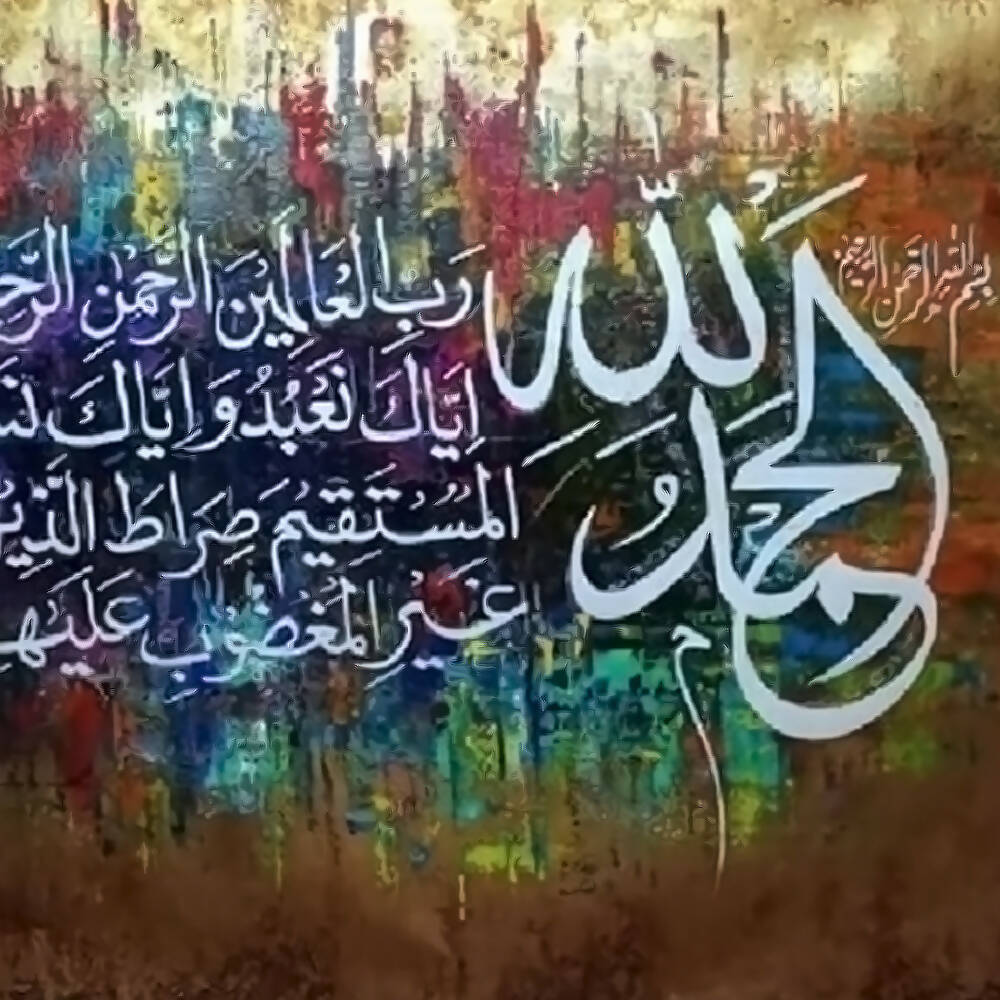 بسم الله الرحمن الرحيم
الحمد لله
رَبِّ الْعَالَمِيْنَ الرَّحْمٰنِ
اِيَّاكَ نَعْبُدُ وَاِيَّاكَ
الْمُسْتَقِيْمَ صِرَاطَ
غَيْرِ الْمَغْضُوْبِ